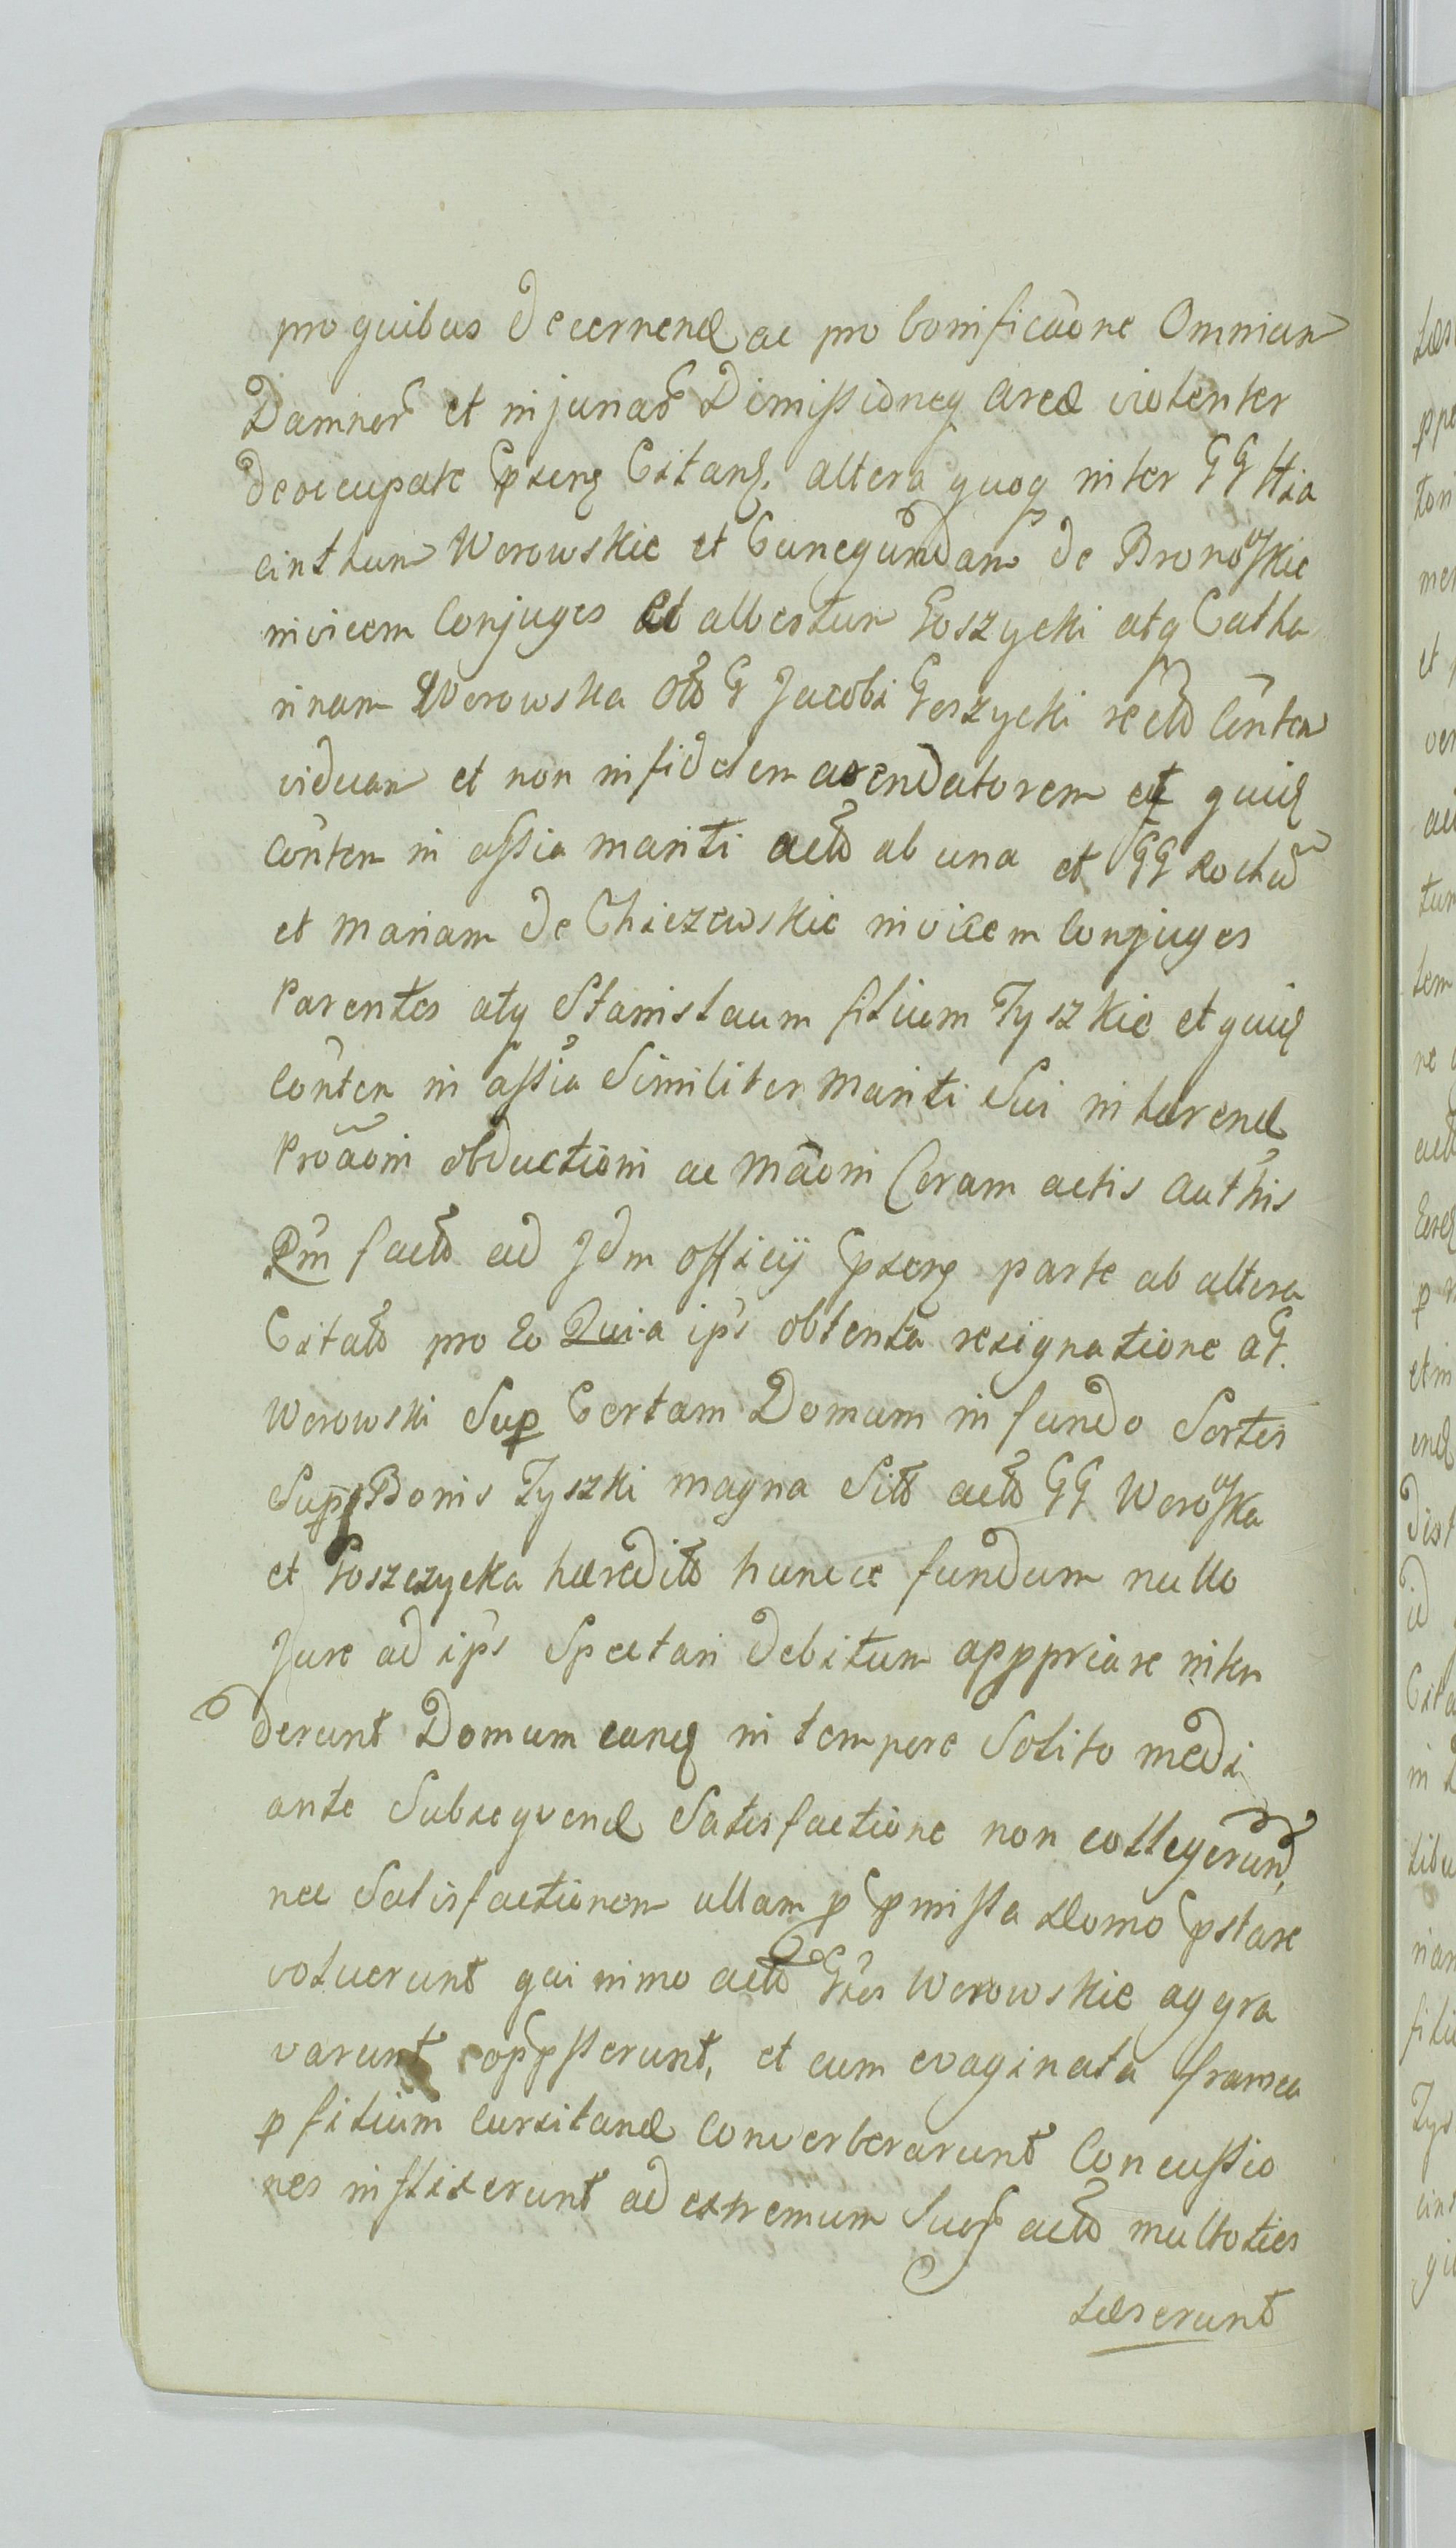 pro quibus decernend ac pro bonificãone Omnium
Damnor et injuriar Dimissioneq areæ violenter
deoccupatæ Ppsens Citans. altera quoq inter GG Hia
cinthum Worowskie et Cunegundam de Bronoskie
invicem Conjuges et albertum Goszycki atq Catha
rinam Worowska olõ G Jacobi Goszycki relõ Conten
viduam et non infidelem arendatorem et quid
Conten in assia mariti actõ ab una et GG Rochũ
et Mariam de Chiczewskie invicem Conjuges
Parentes atq Stanislaum filium Tyszkie et quid
Conten in assia Similiter mariti Sui inhærend
Proãoni obductioni ac Mãoni Coram actis auth̃is
Rm̃ factõ ad Jdm officij Ppsens parte ab altera
Citatõ pro eo Quia ip̃i obtenta resignatione a G.
Worowski Sup Certam Domum in fundo Sortis
Sup Bonis Tyszki magna Sitõ actõ GG Woroska
et Goszczycka hæreditõ huncce fundum nullo
Jure ad ip̃s Spectari debitum apppriare inten
derunt Domum eand in tempore Solito medi
ante Subsequend Satisfactione non collegerunt,
nec Satisfactionem ullam p pmissa Domo pstare
voluerunt qui nimo actõ Gres Worowskie aggra
varunt opp̃sserunt, et cum evaginata framea
p filium Cursitand Converberarunt Concussio
nes instixerunt ad extremum Suos actõ multoties
læserunt